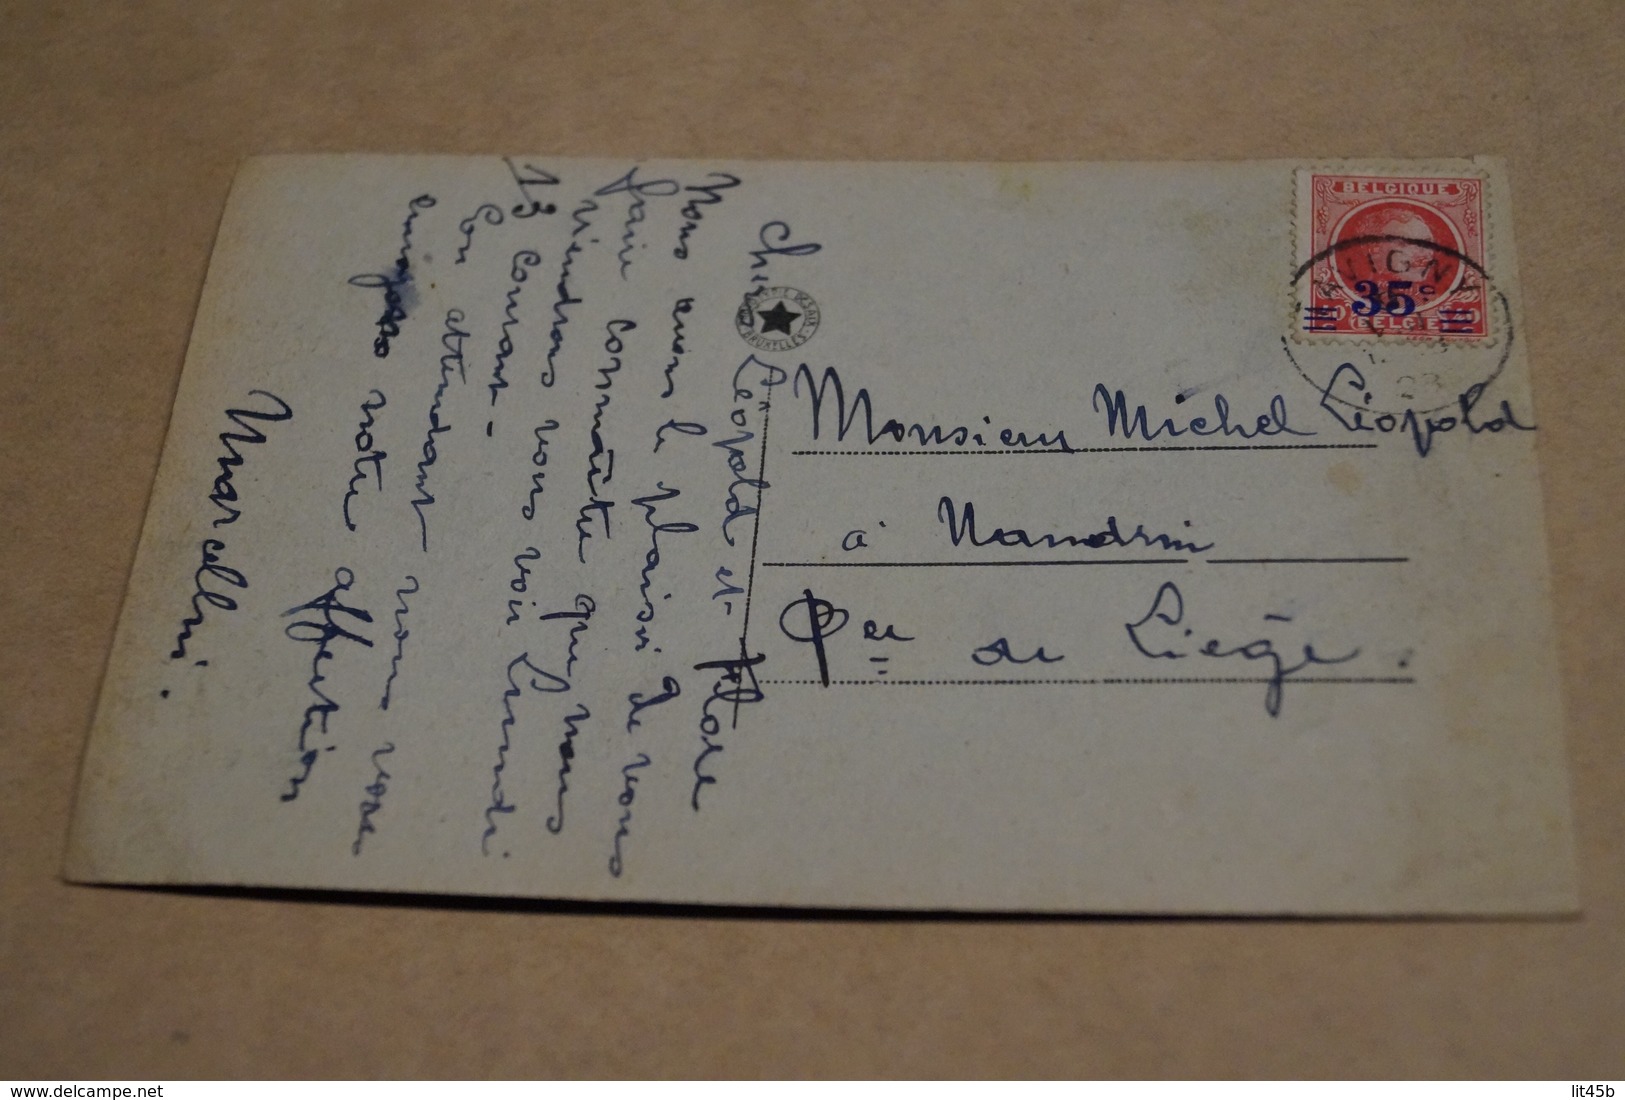 Cher Léopold et Flode
Nous avons le plaisir de vous
faire connaître que nous
viendrons vous voir Lundi
13 courant -
En attendant nous vous
envoyons notre affection
Marcellin.
BELGIQUE
35
BELGIE
BRUXELLES
Monsieur Michel Léopold
à Nandrin
Pce de Liège.
www.delcampe.net
lit45b